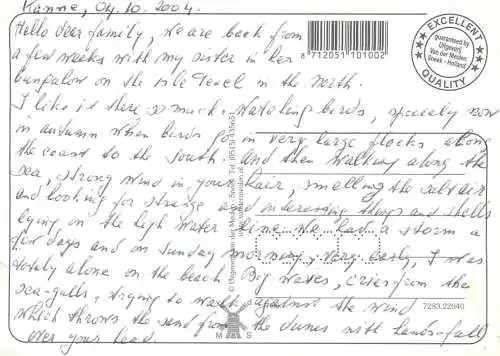 Kanne, 04.10.2004.
Hello dear family, we are back from
a few weeks with my sister in her
bungalow on the isle Texel in the North.
I like it there so much. Watching birds, specialy now
in autumn when birds go in very large flocks, along
the coast to the South. And then walking along the
sea, strong wind in your hair, smelling the salt air
and looking for strange and interesting things and shells
lying on the high water line. We had a storm a
few days and on sunday morning, very early, I was
totaly alone on the beach. Big waves, cries from the
sea-gulls, trying to walk against the wind
which throws the sand from the dunes with hands-full
over your head.
8 712051 101002
EXCELLENT
guaranteed by
Uitgeverij
Van der Meulen
Sneek - Holland
QUALITY
M S
7283.22040